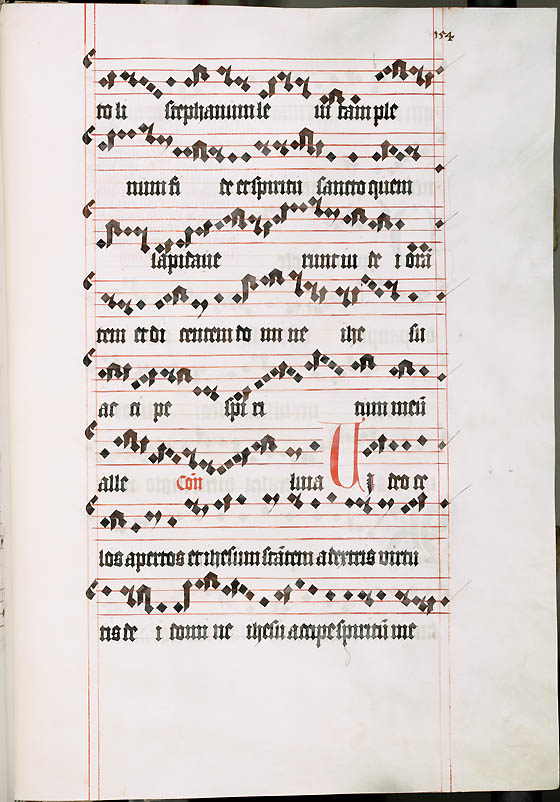 154
to li stephanum le ui tam ple
num fi de et spiritu sancto quem
lapidaue runt iu de i orā
tem et di centem do mi ne ihe su
ac ci pe spi ri tum meū
alle Cōn luia Ui deo ce
los apertos et ihesum stātem a dextris virtu
tis de i domi ne ihesu accipe spiritū me